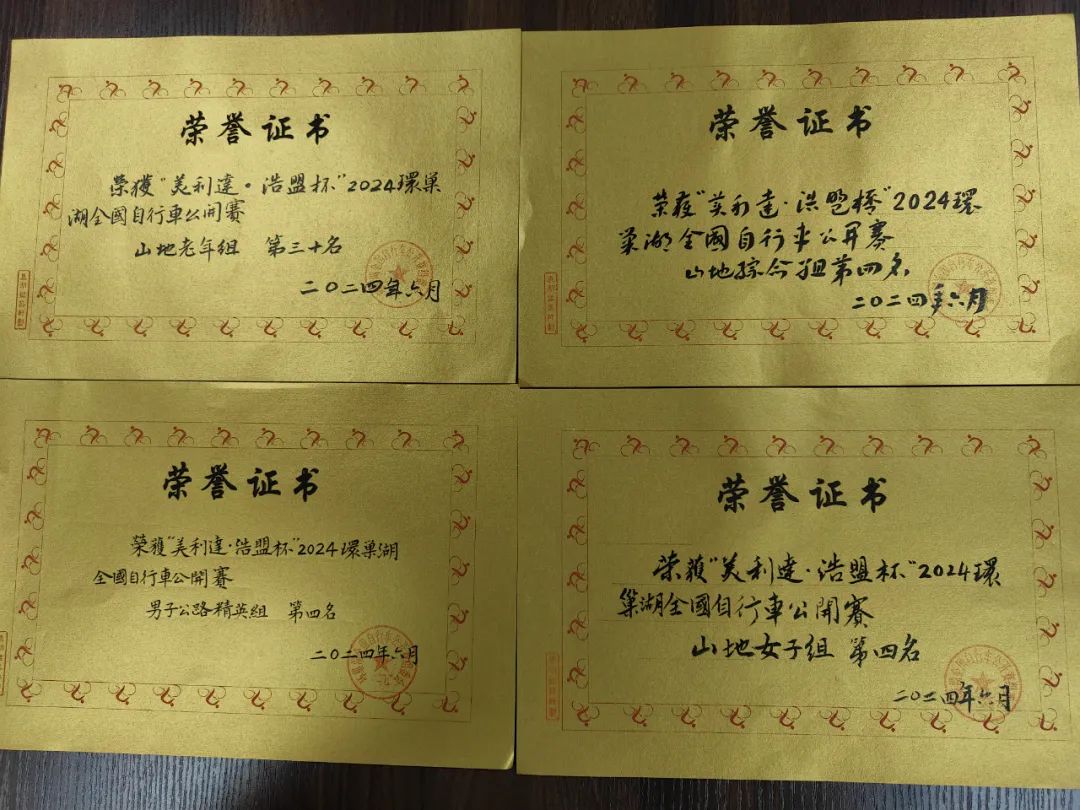 荣誉证书
榮獲“美利達·浩盟杯”2024環巢
湖全國自行車公開賽
山地老年组 第三十名
二〇二四年六月
荣誉证书
荣獲“美利達·浩盟杯”2024環
巢湖全國自行车公開賽
山地综合组第四名
二〇二四年六月
荣誉证书
榮獲“美利達·浩盟杯”2024環巢湖
全國自行車公開賽
男子公路精英组 第四名
二〇二四年六月
荣誉证书
荣獲“美利達·浩盟杯”2024環
巢湖全國自行車公開賽
山地女子组 第四名
二〇二四年六月